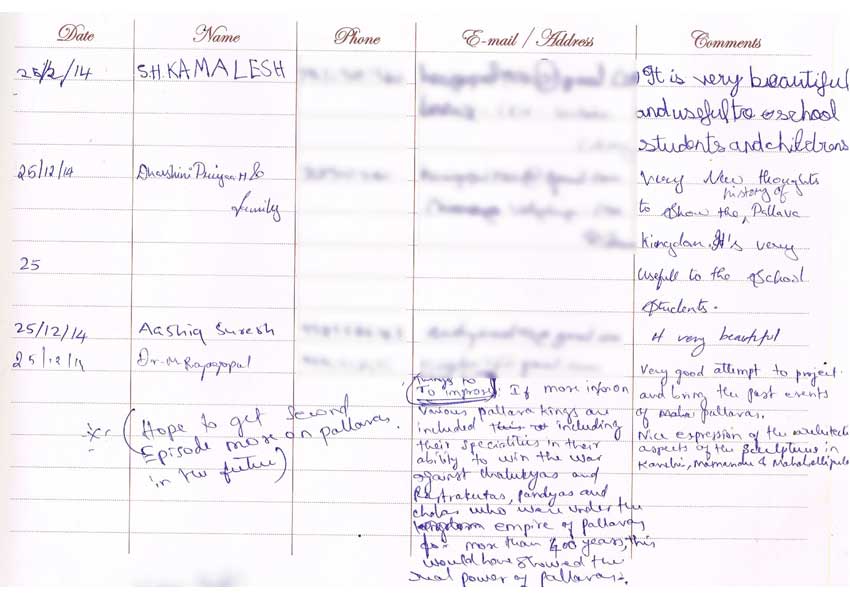 Date Name Phone E-mail / Address Comments
25/2/14 S.H.KAMALESH It is very beautiful
and useful to school
students and childrens
25/12/14 Dharshini Priyaa H & Very New thoughts
family history of
to show the, Pallava
kingdon. It's very
25
usefull to the school
students.
25/12/14 Aashiq Suresh very beautiful
25/12/14 Dr. M Rajagopal Very good attempt to project
and bring the past events
of Maha pallavas.
Nice expression of the
aspects of the sculptures in
Kanchi, Mamandur & Mahaballipuram
(Hope to get second
Episode more on pallavas.
in the future)
Things to
To improve: If more infor on
Various pallava kings are
included including
their specialities in their
ability to win the war
against chalukyas and
Rastrakutas, pandyas and
cholas who were under the
empire of pallavas
for more than 400 years, this
would have showed the
real power of pallavas.